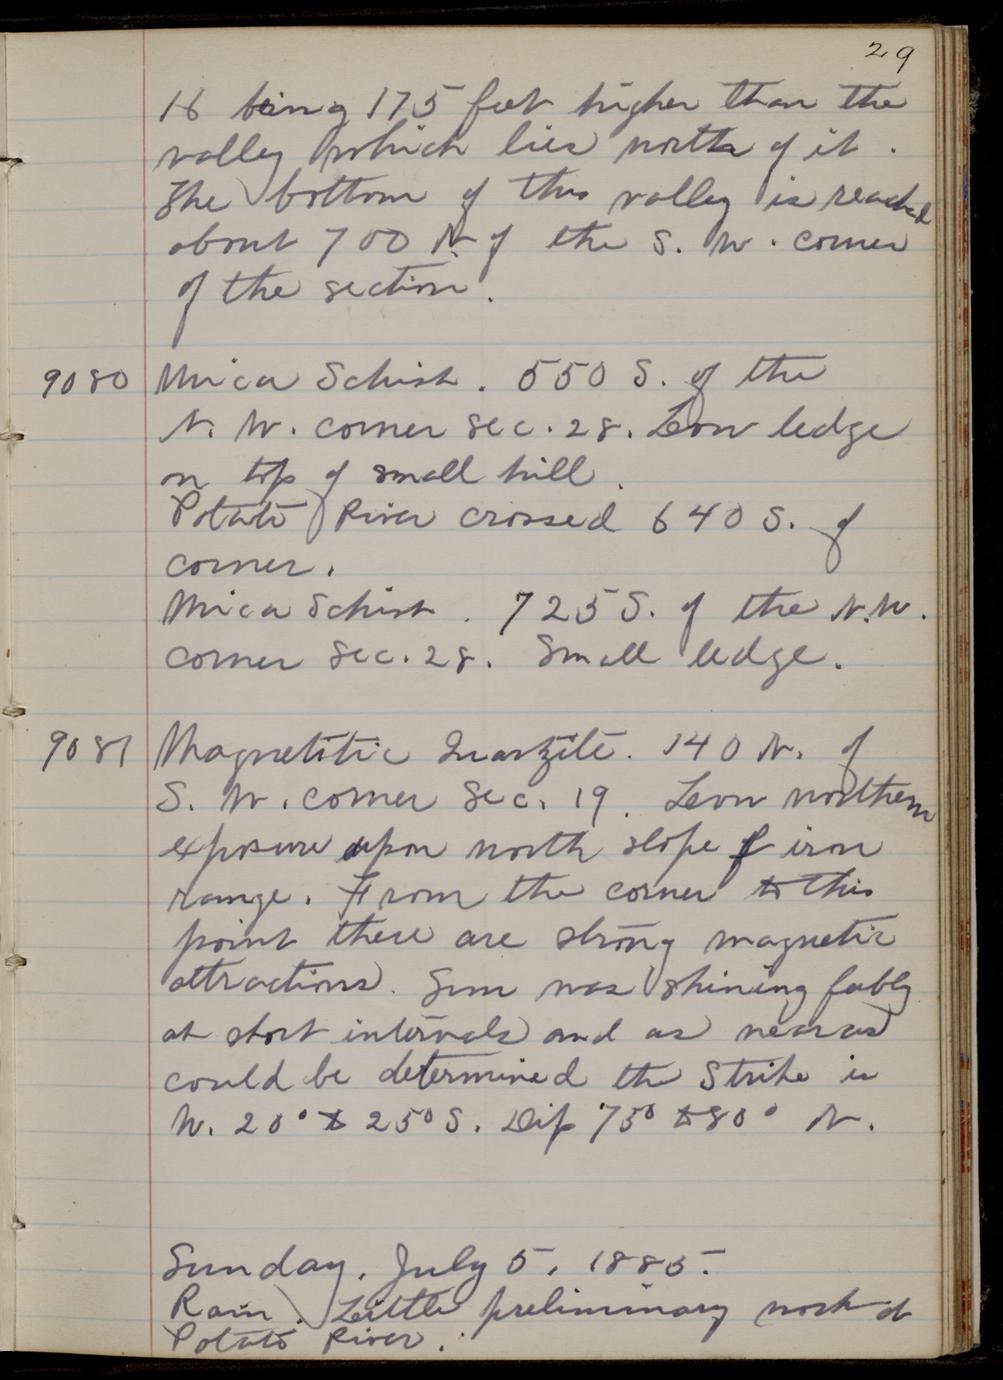 29
16 being 175 feet higher than the
valley which lies north of it.
The bottom of this valley is reached
about 700 N. of the S. W. corner
of the section.
9080 Mica Schist. 550 S. of the
N. W. corner Sec. 28. Low ledge
on top of small hill.
Potato River crossed 640 S. of
corner.
Mica Schist. 725 S. of the N.W.
corner Sec. 28. Small ledge.
9081 Magnetitic Quartzite. 140 N. of
S. W. corner Sec. 19. Low northern
exposure upon north slope of iron
range. From the corner to this
point there are strong magnetic
attractions. Sun was shining feebly
at short intervals and as near as
could be determined the Strike is
W. 20° to 25° S. Dip 75° to 80° N.
Sunday, July 5, 1885.
Rain. Little preliminary work at
Potato River.